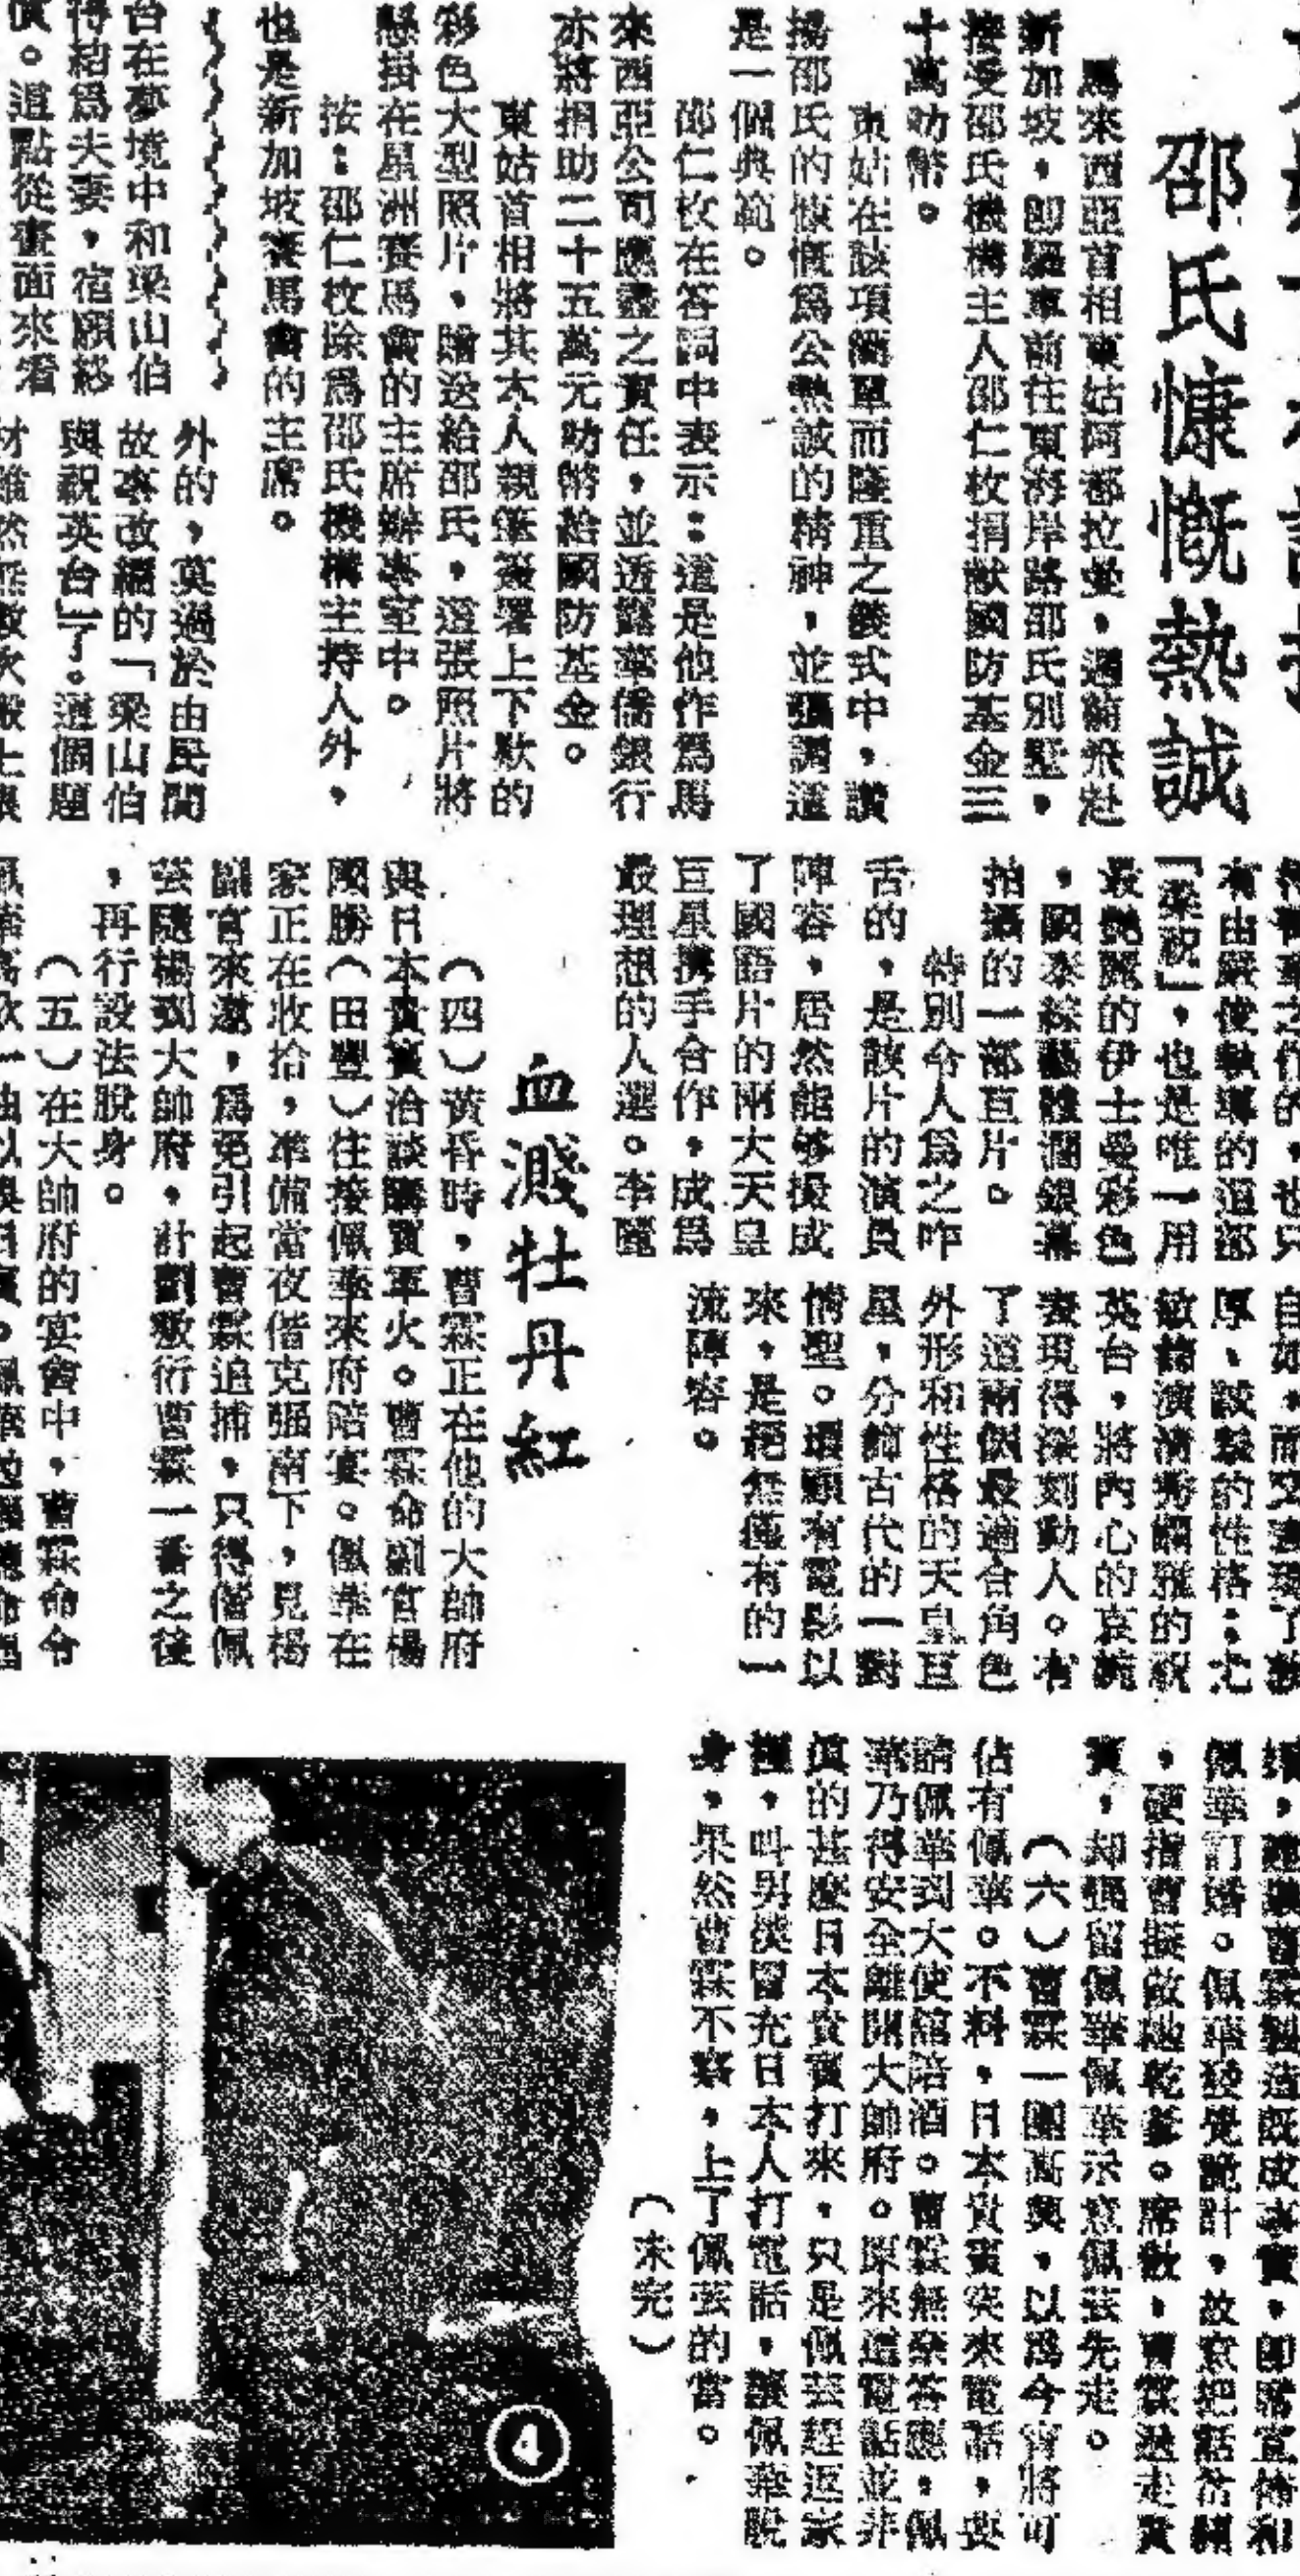 邵氏慷慨熱誠
馬來西亞首相東姑阿都拉曼,週前飛赴
新加坡,即驅車前往東海岸路邵氏別墅,
接受邵氏機構主人邵仁枚捐獻國防基金三
十萬助幣。
東姑在該項簡單而隆重之儀式中,讚
揚邵氏的慷慨為公熱誠的精神,並強調這
是一個典範。
邵仁枚在答詞中表示:這是他作為馬
來西亞公司應盡之責任,並透露華僑銀行
亦將捐助二十五萬元助幣給國防基金。
東姑首相將其本人親筆簽署上下款的
彩色大型照片,贈送給邵氏,這張照片將
懸掛在星洲賽馬會的主席辦事室中。
按:邵仁枚除為邵氏機構主持人外,
也是新加坡賽馬會的主席。
台在夢境中和梁山伯
得結為夫妻,宿願終
償。這點從畫面來看
外的,莫過於由民間
故事改編的「梁山伯
與祝英台」了。這個題
材雖然無數次搬上銀
有由嚴俊執導的這部
「梁祝」,也是唯一用
最艷麗的伊士曼彩色
,國泰綜藝體濶銀幕
拍攝的一部巨片。
特別令人為之咋
舌的,是該片的演員
陣容,居然能够擬成
了國語片的兩大天皇
巨星携手合作,成為
最理想的人選。李麗
英台,將內心的哀婉
表現得深刻動人。有
了這兩個最適合角色
外形和性格的天皇巨
星,分飾古代的一對
情聖。環顧有電影以
來,是絕無僅有的一
流陣容。
血濺牡丹紅
(四)黃昏時,曹霖正在他的大帥府
與日本貴賓洽談購買軍火。曹霖命副官楊
國勝(田豐)往接佩華來府陪宴。佩華在
家正在收拾,準備當夜偕克强南下,見楊
副官來邀,為免引起曹霖追捕,只得偕佩
芸隨楊到大帥府,計劃敷衍曹霖一番之後
,再行設法脫身。
(五)在大帥府的宴會中,曹霖命令
佩華訂婚。佩華發覺詭計,故意把話岔開
,硬指曹擬做她乾爹。席散,曹霖送走貴
賓,却强留佩華佩華示意佩芸先走。
(六)曹霖一團高興,以為今宵將可
佔有佩華。不料,日本貴賓突來電話,要
請佩華到大使館陪酒。曹霖無奈答應,佩
華乃得安全離開大帥府。原來這電話並非
真的甚麼日本貴賓打來,只是佩芸趕返家
裡,叫男僕冒充日本人打電話,讓佩華脫
身,果然曹霖不察,上了佩芸的當。
(未完)
4